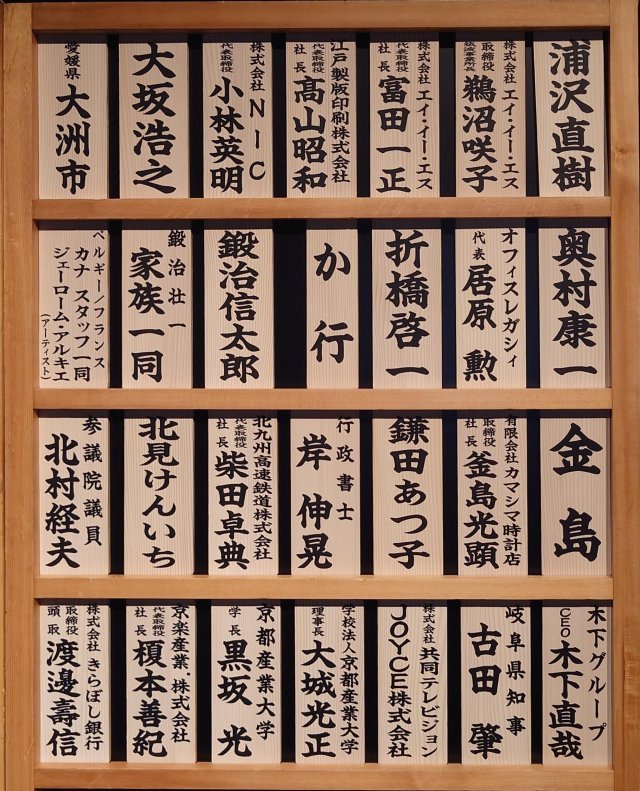 浦沢直樹
株式会社 エイ・イー・エス
取締役
鵜沼咲子
株式会社 エイ・イー・エス
代表取締役
社長
富田一正
江戸製版印刷株式会社
代表取締役
社長
髙山昭和
株式会社 NIC
代表取締役
小林英明
大坂浩之
愛媛県
大洲市
奥村康一
オフィスレガシィ
代表
居原 勲
折橋啓一
か行
鍛治信太郎
鍛治壮一
家族一同
ベルギー/フランス
カナ スタッフ一同
ジェーローム・アルキエ
(アーティスト)
金島
有限会社カマシマ時計店
取締役
社長
釜島光顕
鎌田あつ子
行政書士
岸 伸晃
北九州高速鉄道株式会社
代表取締役
社長
柴田卓典
北見けんいち
参議院議員
北村経夫
木下グループ
CEO
木下直哉
岐阜県知事
古田 肇
株式会社 共同テレビジョン
JOYCE株式会社
学校法人京都産業大学
理事長
大城光正
京都産業大学
学長
黒坂 光
京楽産業.株式会社
代表取締役
社長
榎本善紀
株式会社 きらぼし銀行
取締役
頭取
渡邊壽信